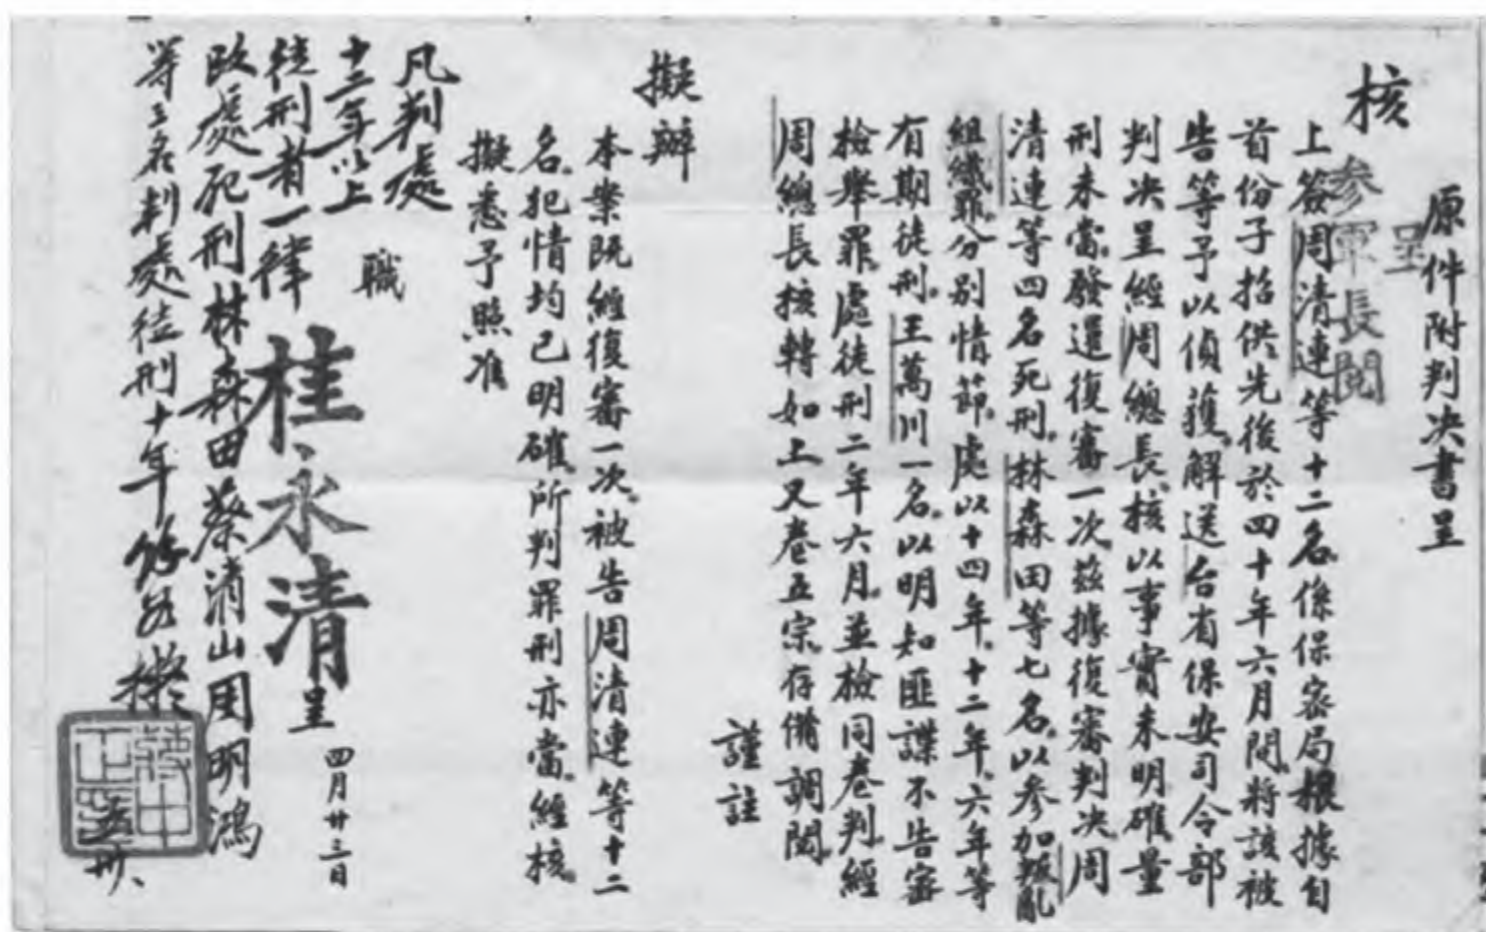 原件附判决書呈
呈
參軍長閱
核
上簽周清連等十二名係保密局根據自
首份子招供先後於四十年六月間將該被
告等予以偵獲解送台省保安司令部
判决呈經周總長核以事實未明確量
刑未當發還復審一次茲據復審判决周
清連等四名死刑林森田等七名以參加叛亂
組織罪分別情節處以十四年十二年六年等
有期徒刑王萬川一名以明知匪諜不告密
檢舉罪處徒刑二年六月並檢同卷判經
周總長核轉如上又卷五宗存備調閱
謹註
擬辦
本案既經復審一次被告周清連等十二
名犯情均已明確所判罪刑亦當經核
擬悉予照准
職
桂永清呈
四月廿三日
凡判處
十二年以上
徒刑者一律
改處死刑林森田蔡消山周明鴻
等三名判處徒刑十年餘照擬
蔣中正
五卅